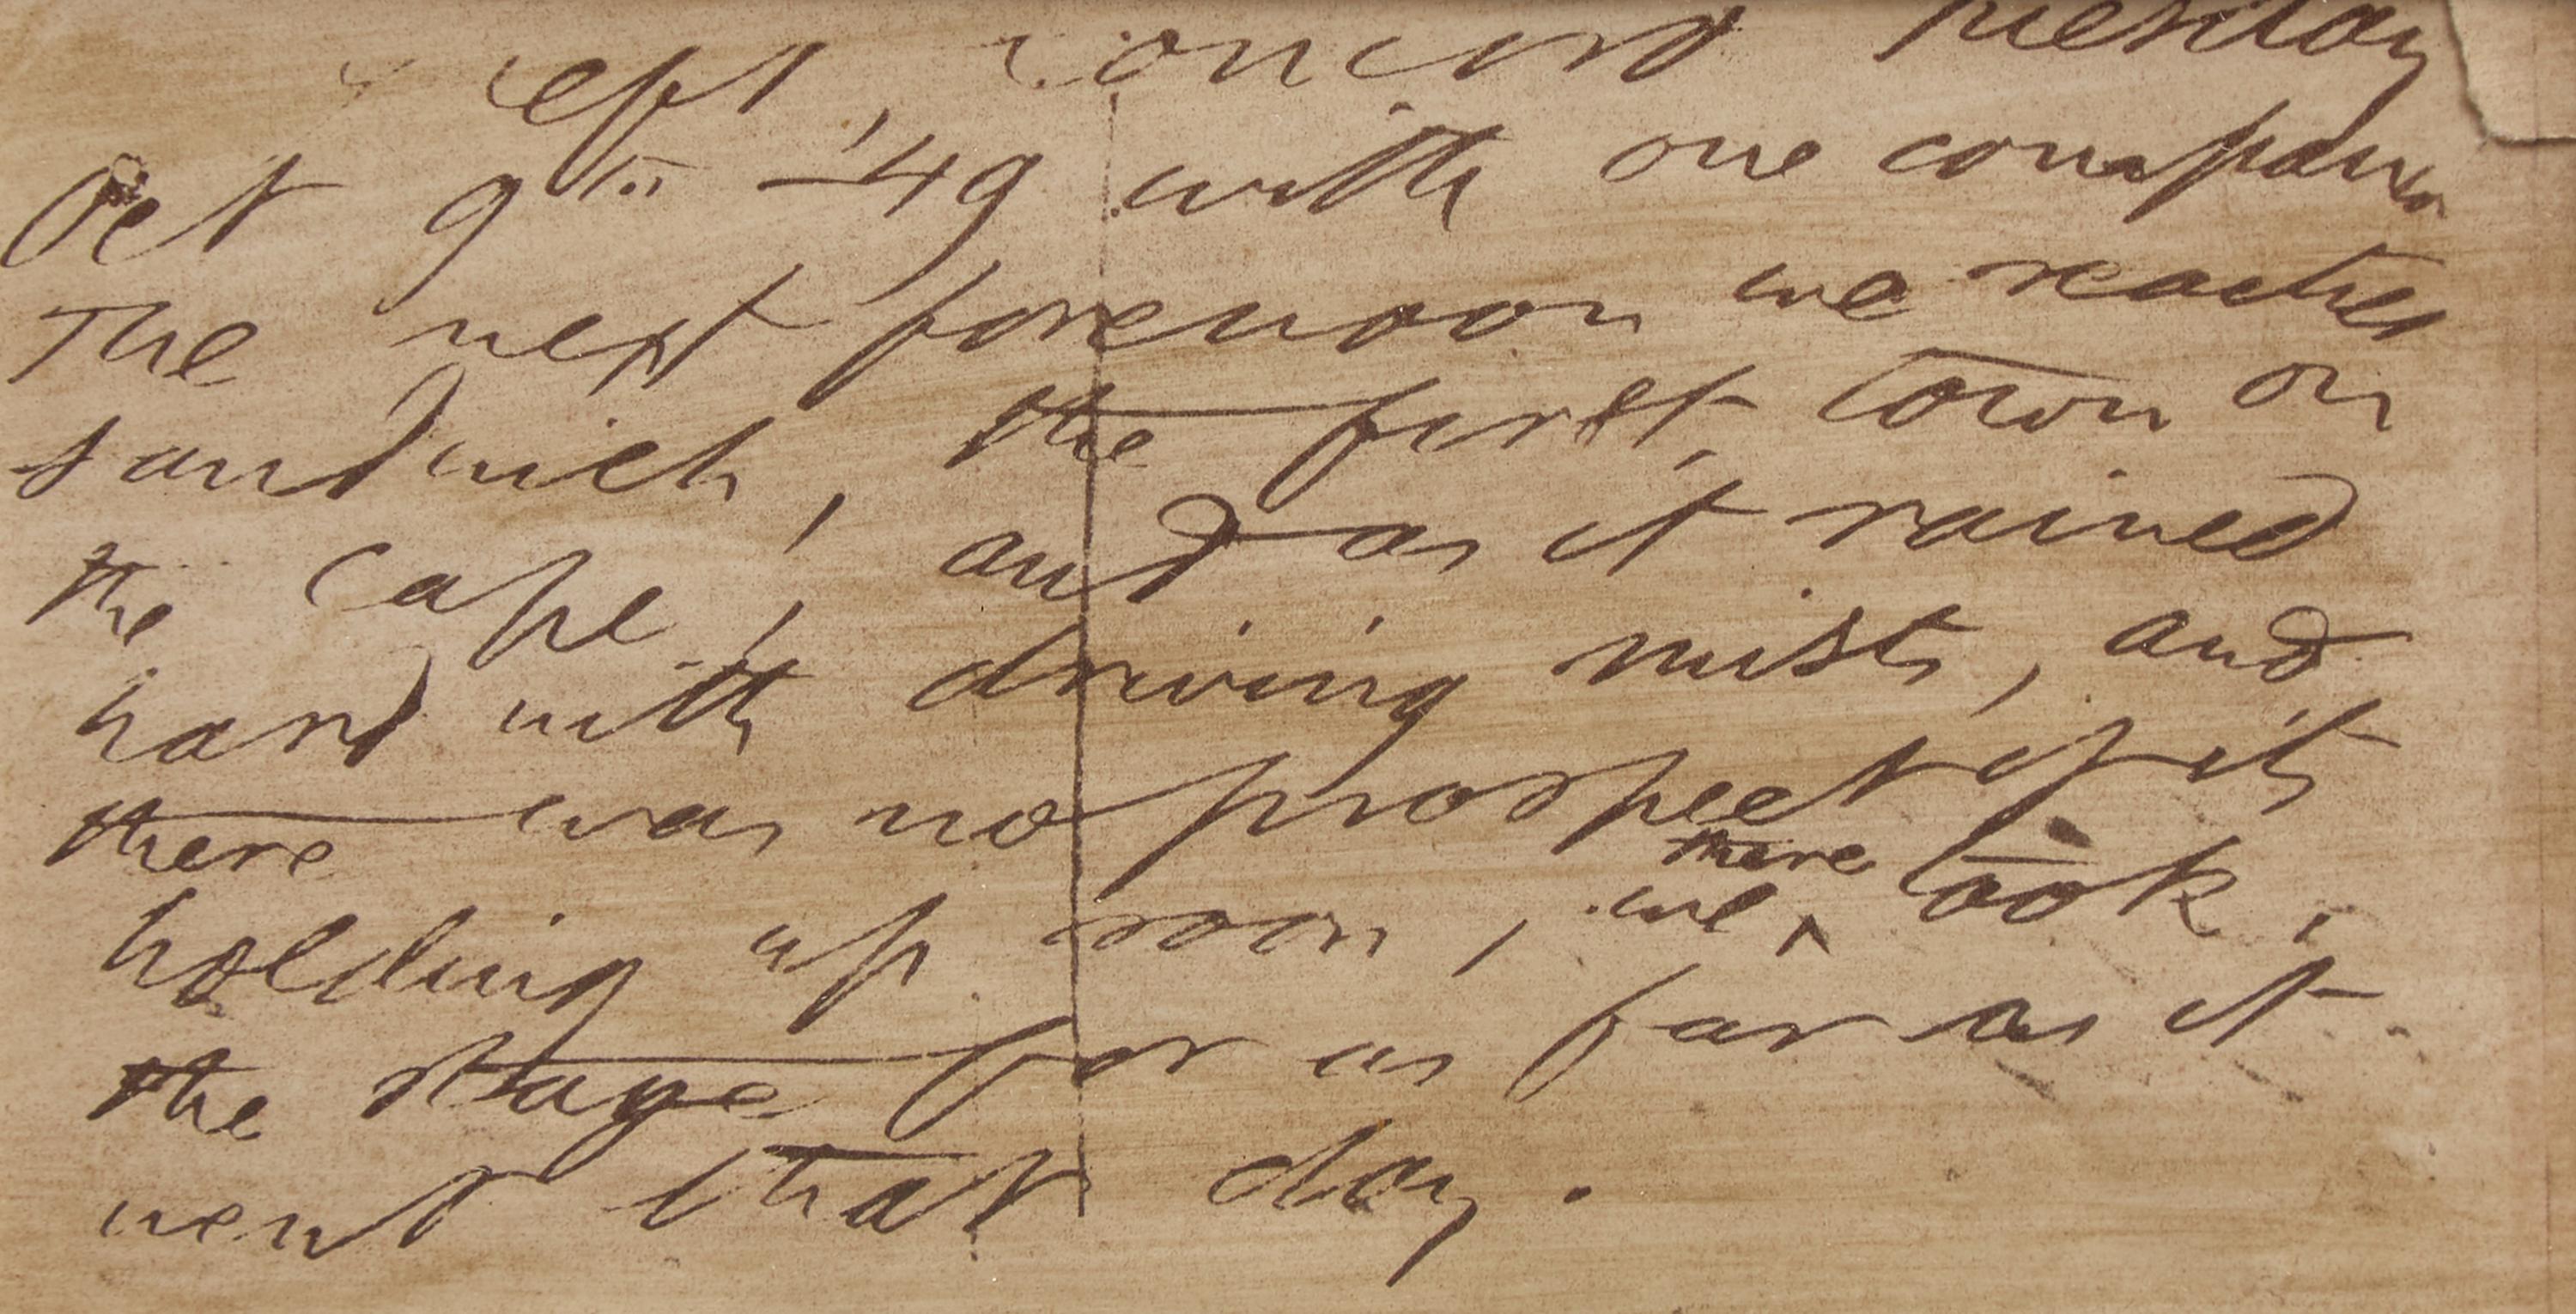 left Concord Tuesday
Oct 9th - '49 with one companion
The next forenoon we reached
Sandwich, the first town on
the Cape, and as it rained
hard with driving mists, and
there was no prospect of its
holding up soon, we ^there took,
the stage for as far as it
went that day.